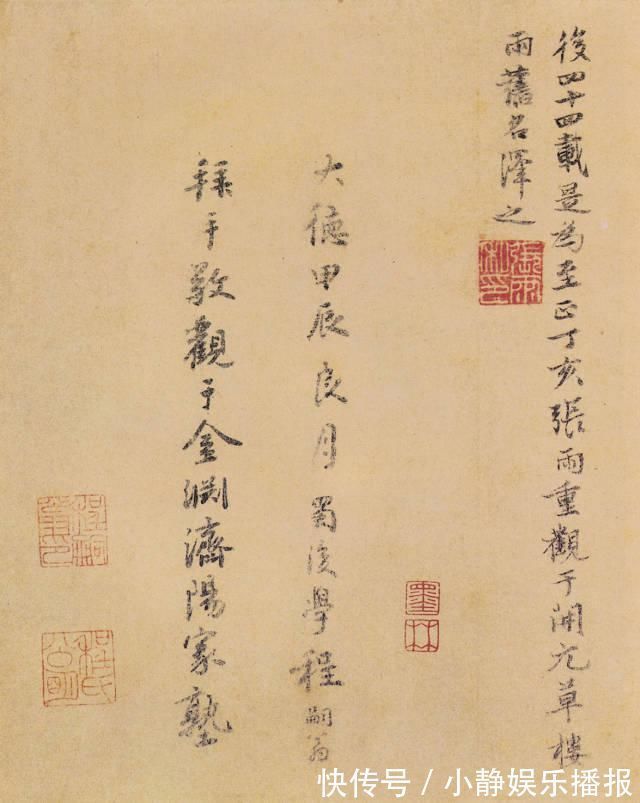 後四十四載是為至正丁亥張雨重觀于開元草樓
雨舊名澤之
大德甲辰良月蜀後學程嗣翁
拜手敬觀于金淵濟陽家塾
墨林
程氏
快传号 / 小静娱乐播报